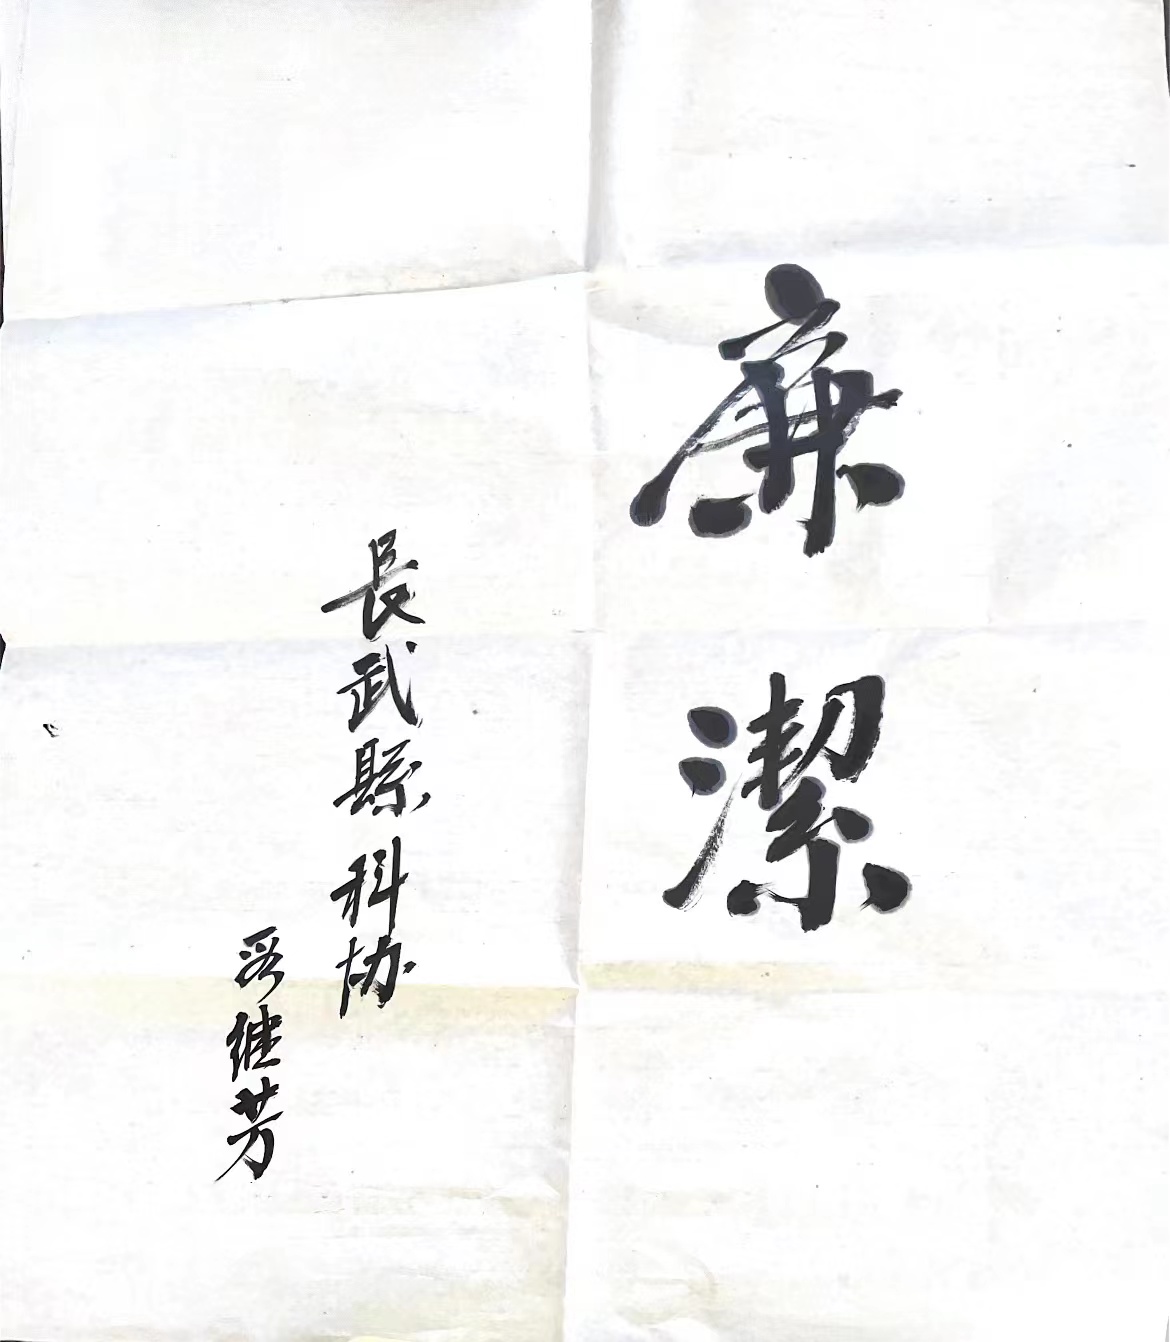 廉潔
長武縣科协
继芳